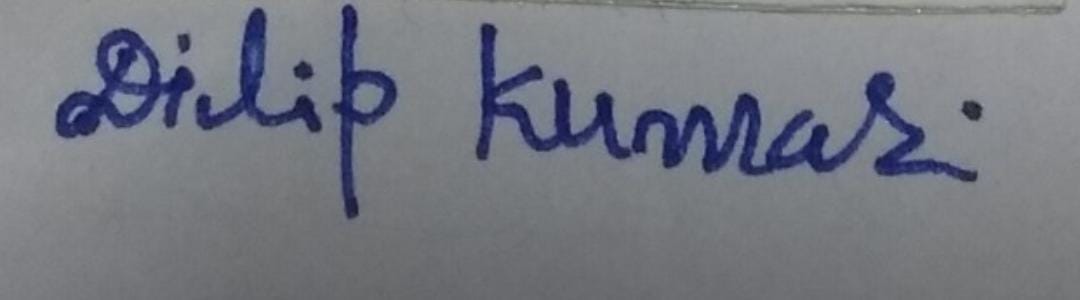 Dilip Kumar.